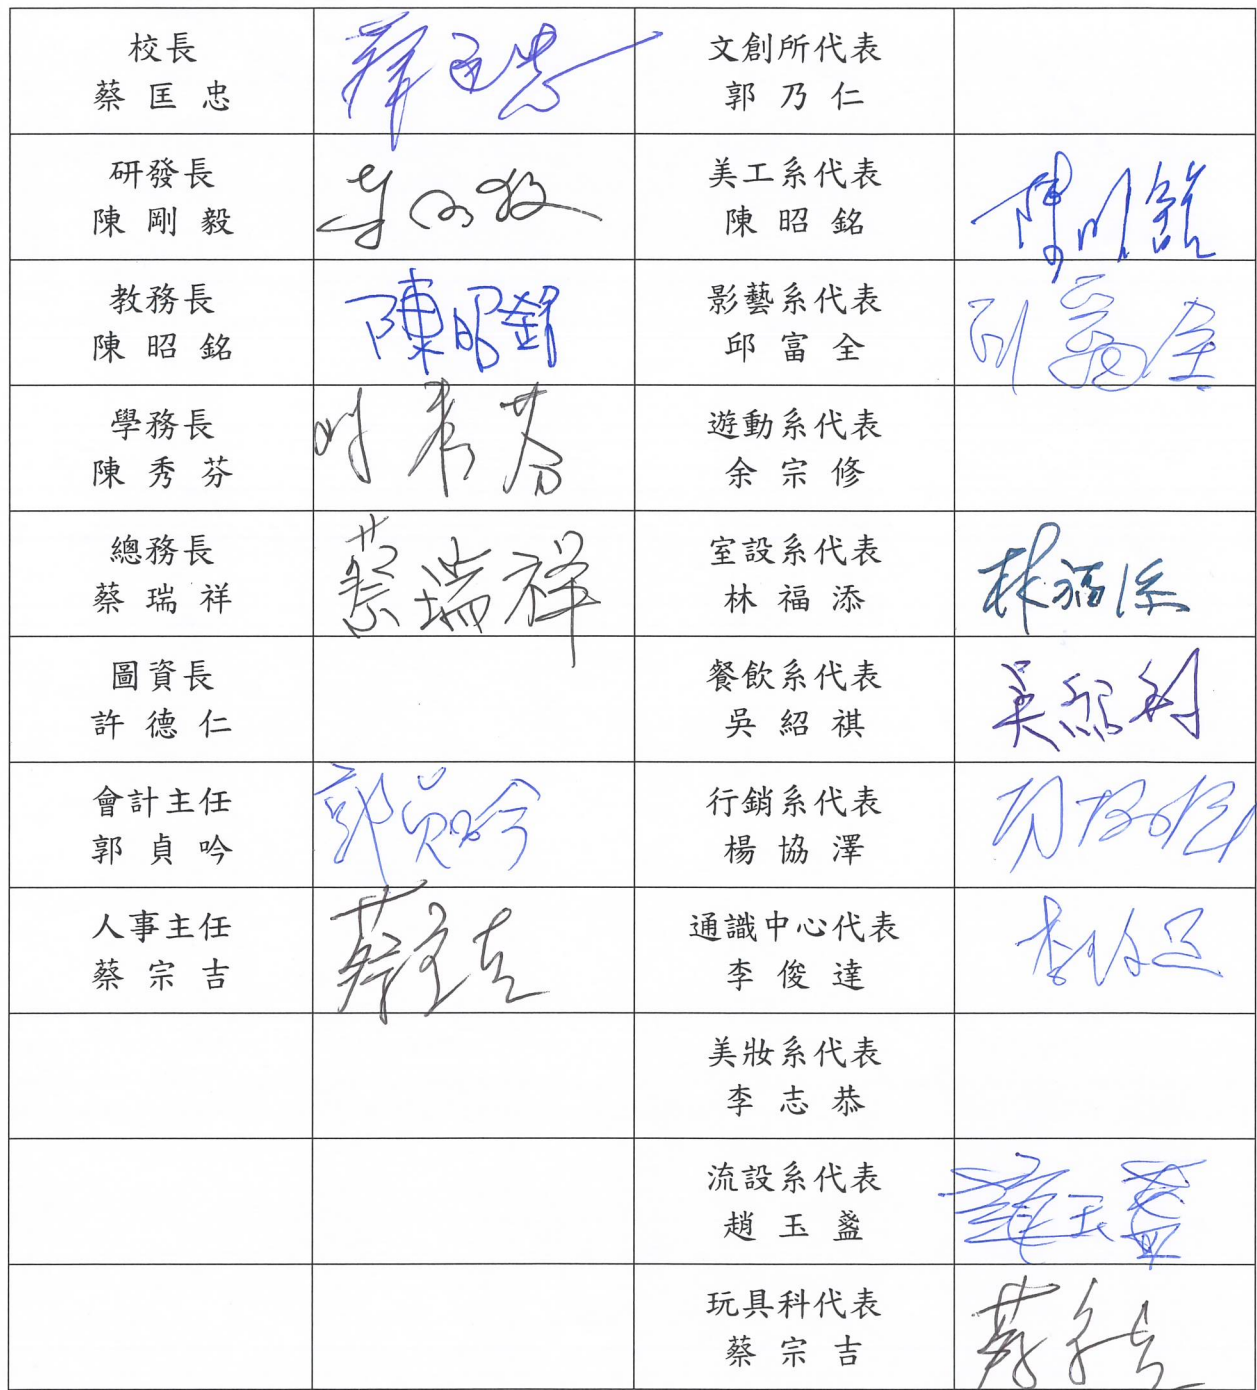 校長
蔡匡忠
文創所代表
郭乃仁
研發長
陳剛毅
美工系代表
陳昭銘
陳昭銘
教務長
陳昭銘
陳昭銘
影藝系代表
邱富全
邱富全
學務長
陳秀芬
陳秀芬
遊動系代表
余宗修
總務長
蔡瑞祥
蔡瑞祥
室設系代表
林福添
林福添
圖資長
許德仁
餐飲系代表
吳紹祺
會計主任
郭貞吟
郭貞吟
行銷系代表
楊協澤
人事主任
蔡宗吉
蔡宗吉
通識中心代表
李俊達
李俊達
美妝系代表
李志恭
流設系代表
趙玉盞
玩具科代表
蔡宗吉
蔡宗吉